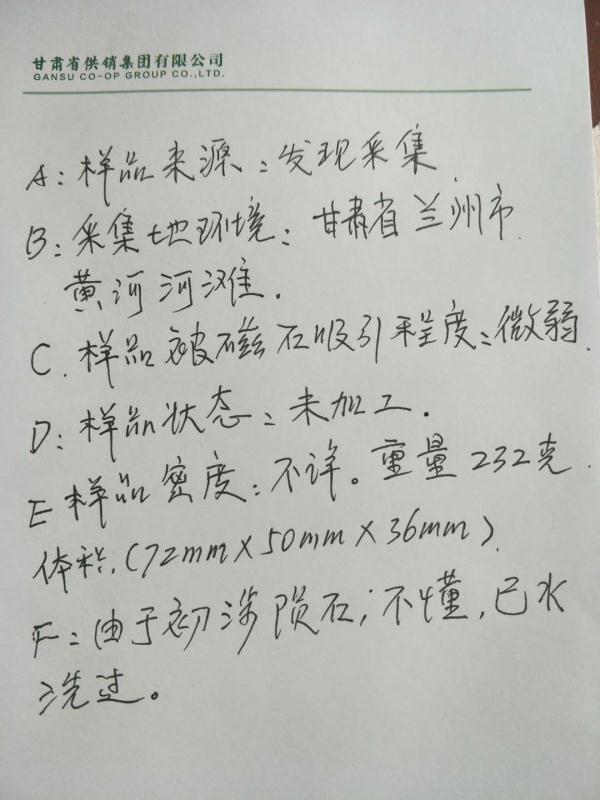 甘肃省供销集团有限公司
GANSU CO-OP GROUP CO.,LTD.
A:样品来源:发现采集.
B:采集地环境:甘肃省兰州市
黄河河滩.
C.样品被磁石吸引程度:微弱.
D:样品状态:未加工.
E样品密度:不详。重量232克.
体积.(72mm×50mm×36mm).
F:由于初涉陨石;不懂,已水
洗过。